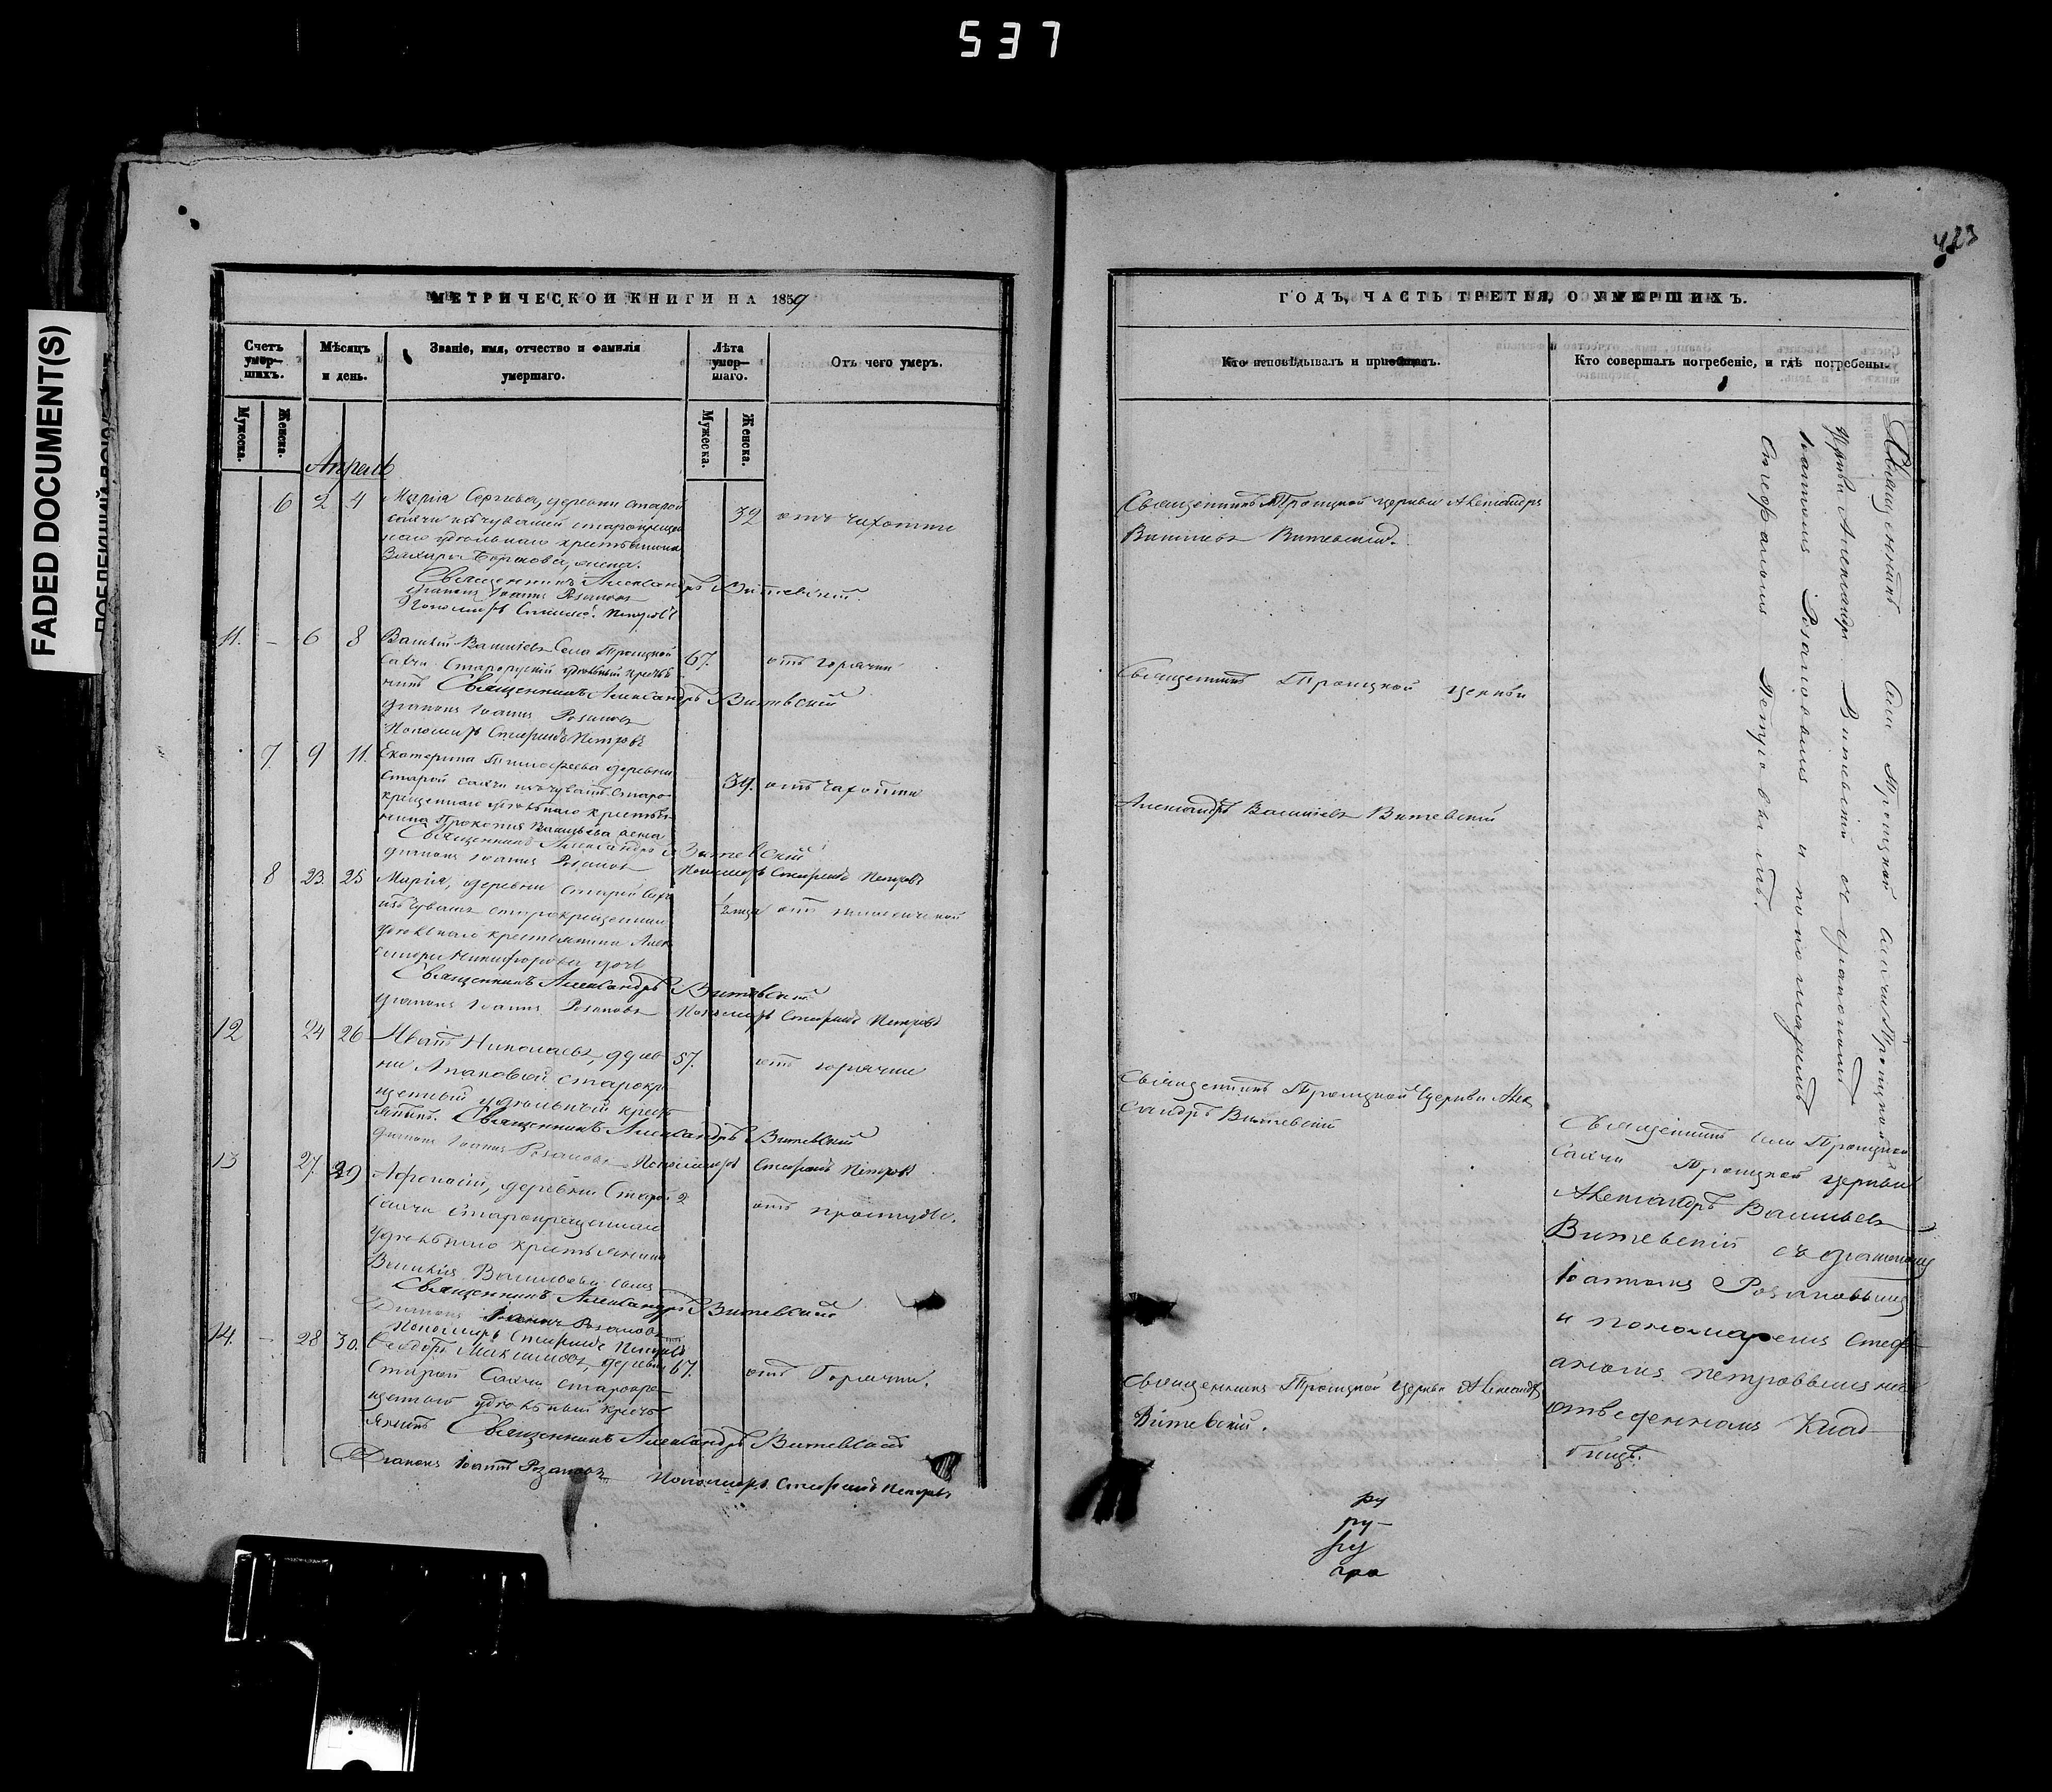 537
FADED DOCUMENT(S)
423
МЕТРИЧЕСКОЙ КНИГИ НА 1859
Счетъ умер-шихъ.
Мѣсяцъ и день.
Званіе, имя, отчество и фамилія умершаго.
Лѣта умер-шаго.
Отъ чего умеръ.
Мужеска.
Женска.
Мужеска.
Женска.
Апрель
6 2 4 Марія Сергѣева, деревни старой 32 отъ чахотки
сахчи изъ чувашей старокрещен
наго удѣльнаго крестьянина
Захара жена.
Священникъ Александръ Витевскій
Діаконъ Іоаннъ Розановъ
Пономарь Петровъ
11. – 6 8 Василій Васильевъ Села Троицкой 67. отъ горячки
Сахчи Старорускій удѣльный кресть
нинъ Священникъ Александръ Витевскій
Діаконъ Іоаннъ Розановъ
Пономарь Стефанъ Петровъ
7. 9 11. Екатерина Тимофеева деревни 39. отъ чахотки
Старой сахчи изъ чувашъ старо
крещеннаго удѣльнаго крестья
нина Прокопія Васильева жена
Священникъ Александръ Витевскій
Діаконъ Іоаннъ Розановъ Пономарь Стефанъ Петровъ
8 23. 25 Марія, деревни старой Сахч отъ
изъ чувашъ старокрещеннаго
удѣльнаго крестьянина Алек
сандра Никифорова дочь
Священникъ Александръ Витевскій
Діаконъ Іоаннъ Розановъ Пономарь Стефанъ Петровъ
12 24 26 Иванъ Николаевъ, дерев 57. отъ горячки
ни старокре
щенный удѣльный кресть
янинъ. Священникъ Александръ Витевскій
Діаконъ Іоаннъ Розановъ Пономарь Стефанъ Петровъ
13 27. 29 Афонасій, деревни Старой 2 отъ простуды.
Сахчи старокрещеннаго
удѣльнаго крестьянина
Василія Васильева сынъ
Священникъ Александръ Витевскій
Діаконъ Іоаннъ Розановъ
Пономарь Стефанъ Петровъ
14. – 28 30. Феодоръ Максимовъ, деревни 67. отъ Горячки.
Старой Сахчи старокре
щенный удѣльный кресть
янинъ Священникъ Александръ Витевскій
Діаконъ Іоаннъ Розановъ Пономарь Стефанъ Петровъ
ГОДЪ, ЧАСТЬ ТРЕТІЯ, О УМЕРШИХЪ.
Кто исповѣдывалъ и пріобщалъ.
Кто совершалъ погребеніе, и гдѣ погребены.
Священникъ Троицкой церкви Александръ
Васильевъ Витевскій.
Священникъ Троицкой церкви
Александръ Васильевъ Витевскій
Священникъ Троицкой Церкви Алек
сандръ Витевскій
Священникъ Троицкой Церкви Александръ
Витевскій.
Священникъ села Троицкой Сахчи Троицкой
церкви Александръ Витевскій съ діакономъ
Іоанномъ Розановымъ и пономаремъ
Стефаномъ Петровымъ.
Священникъ села Троицкой
Сахчи Троицкой церкви
Александръ Васильевъ
Витевскій съ діакономъ
Іоанномъ Розановымъ
и пономаремъ Стеф
аномъ Петровымъ на
отведенномъ Клад
бищѣ.
ру
ру–
ру